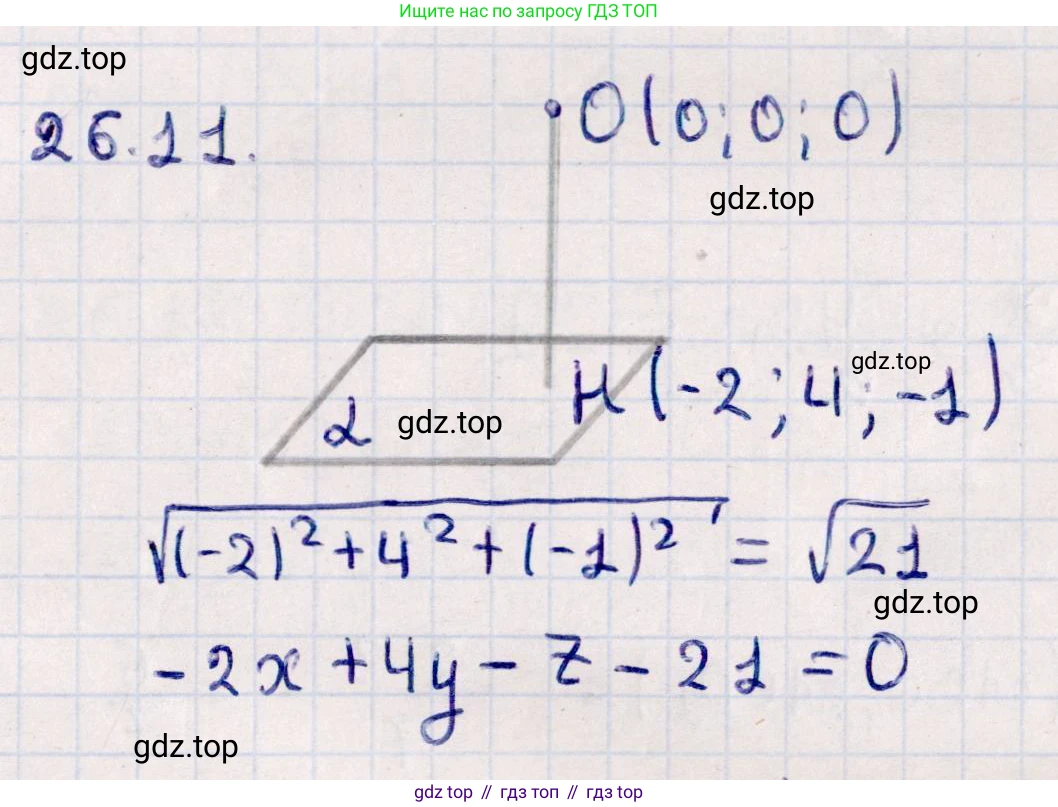 Ищите нас по запросу ГДЗ ТОП
gdz.top
26.11.
O(0; 0; 0)
gdz.top
gdz.top
H(-2; 4; -1)
α
gdz.top
√((-2)²+4²+(-1)²) = √21
gdz.top
-2x+4y-z-21=0
gdz.top
gdz.top // гдз топ // гдз top